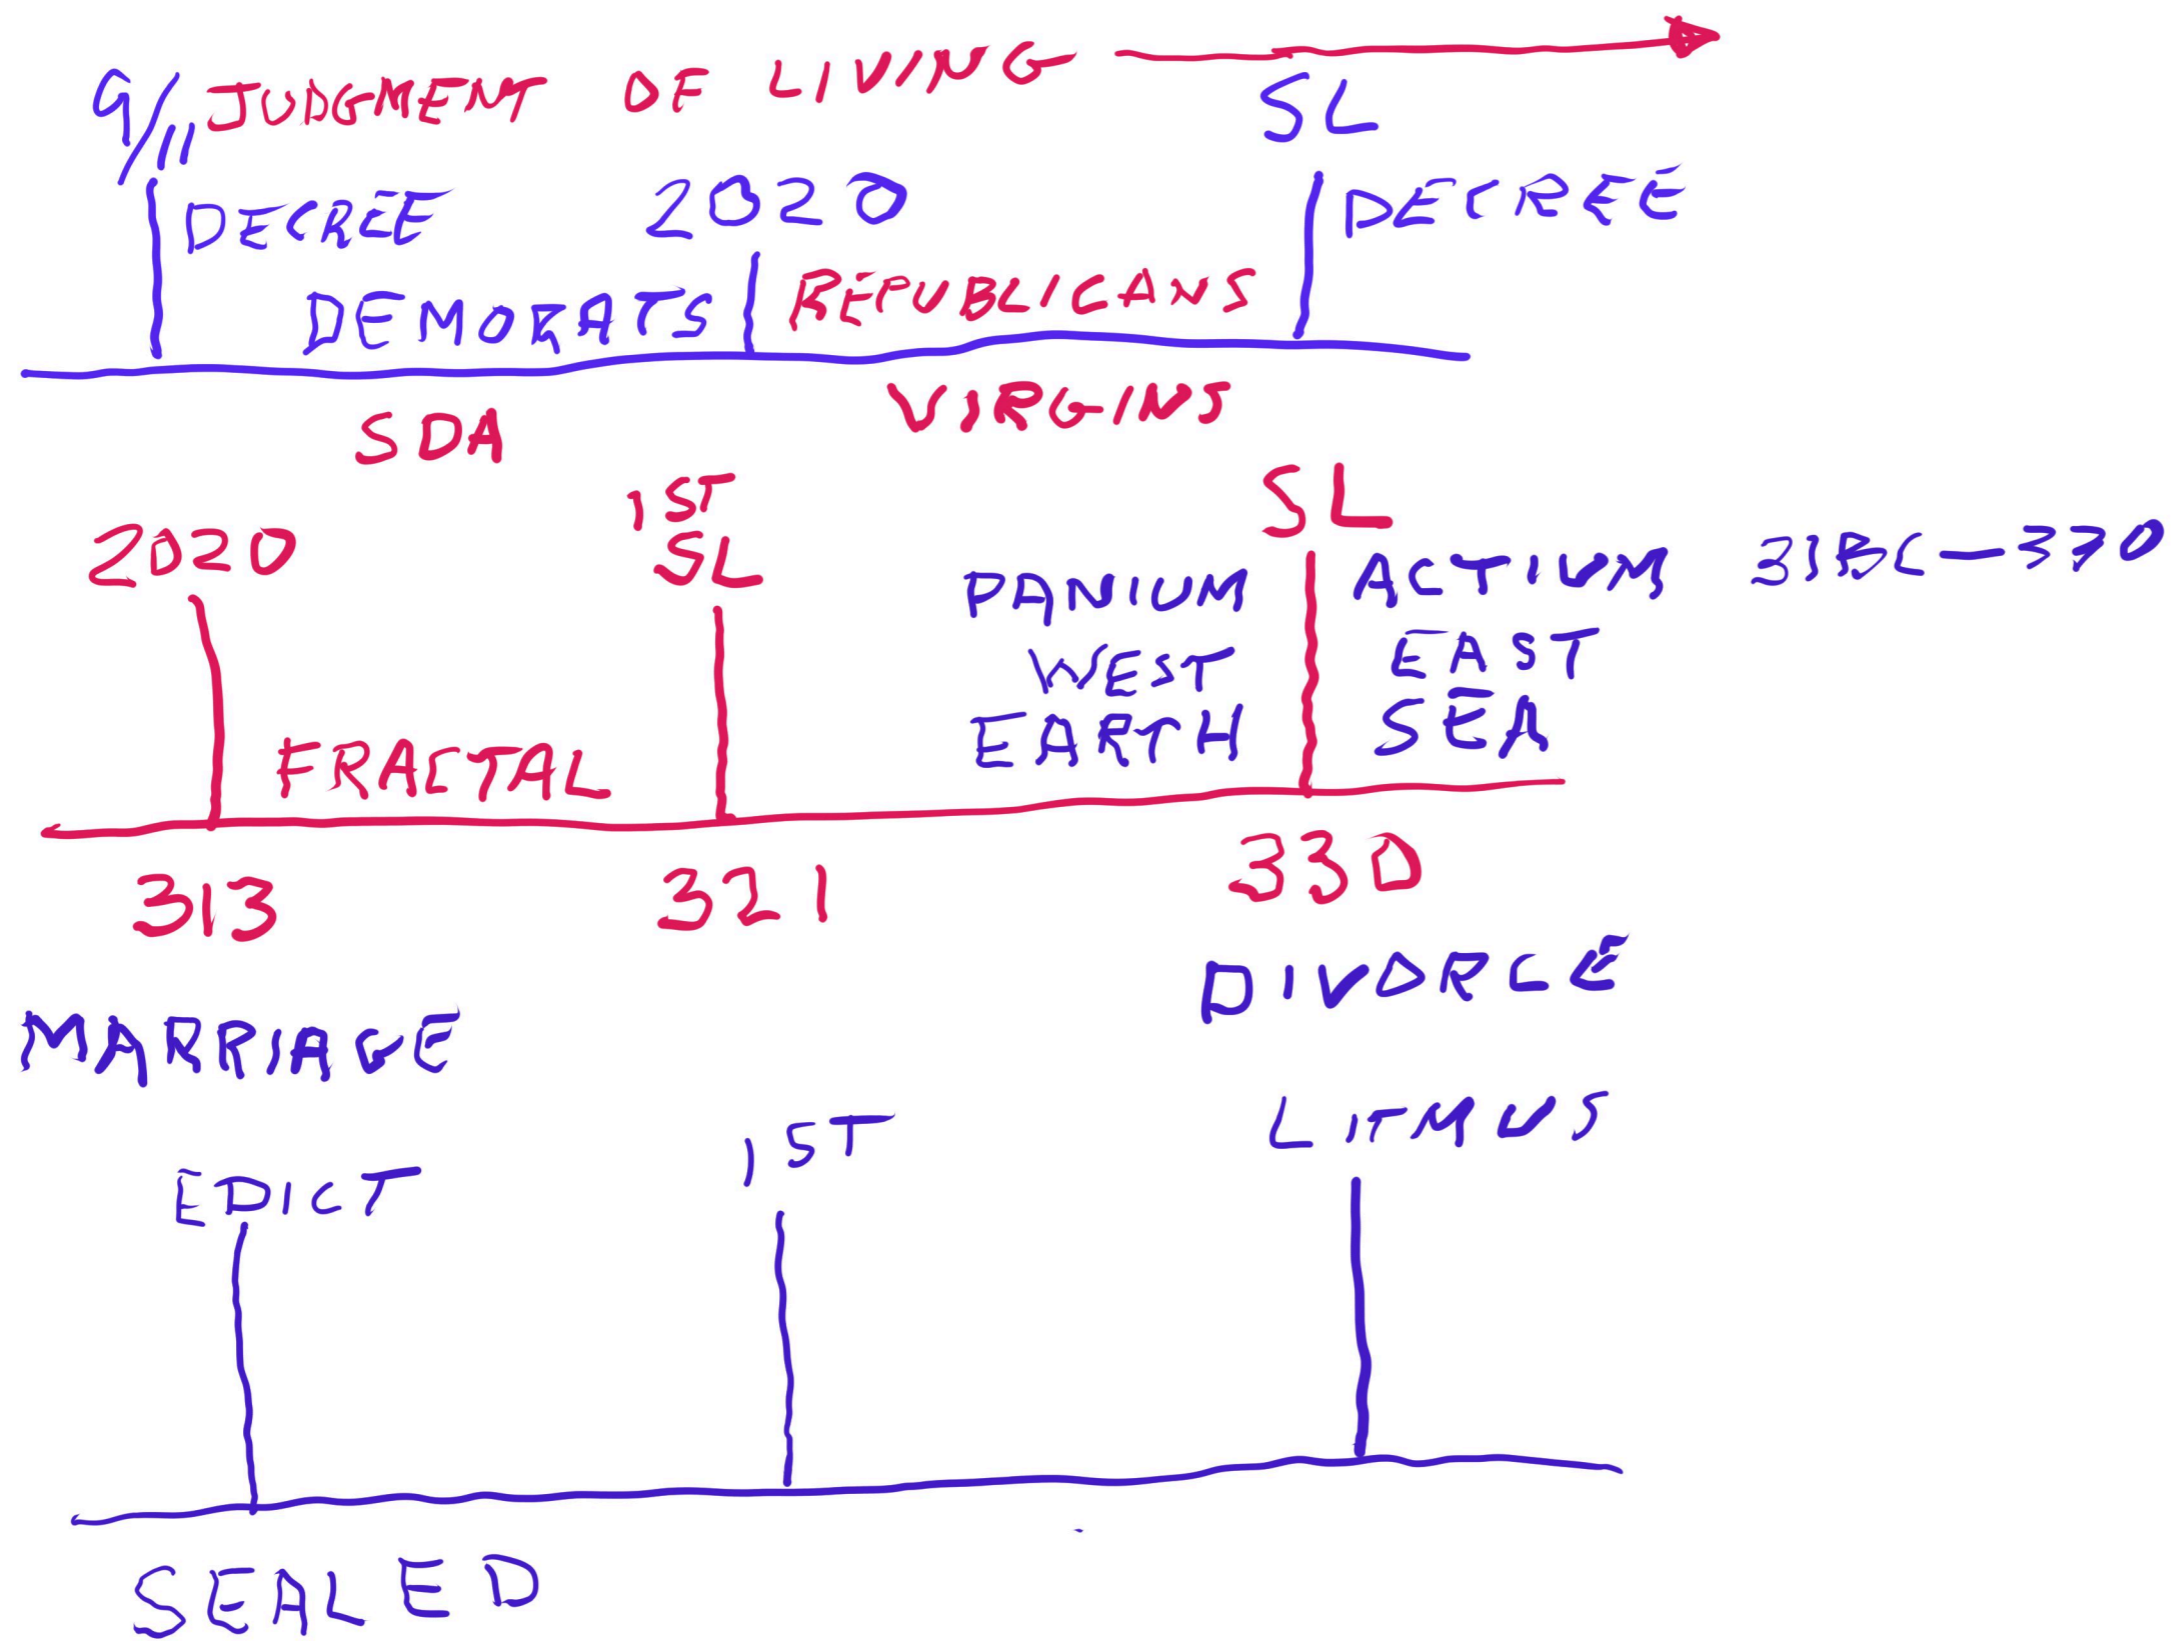 9/11 JUDGMENT OF LIVING
SL
DECREE 2020 DECREE
DEMOKRATS REPUBLICANS
SDA VIRGINS
2020 1ST SL SL
PANIUM ACTIUM 31BC—330
WEST EAST
EARTH SEA
FRACTAL
313 321 330
MARRIAGE DIVORCE
EDICT 1ST LITMUS
SEALED